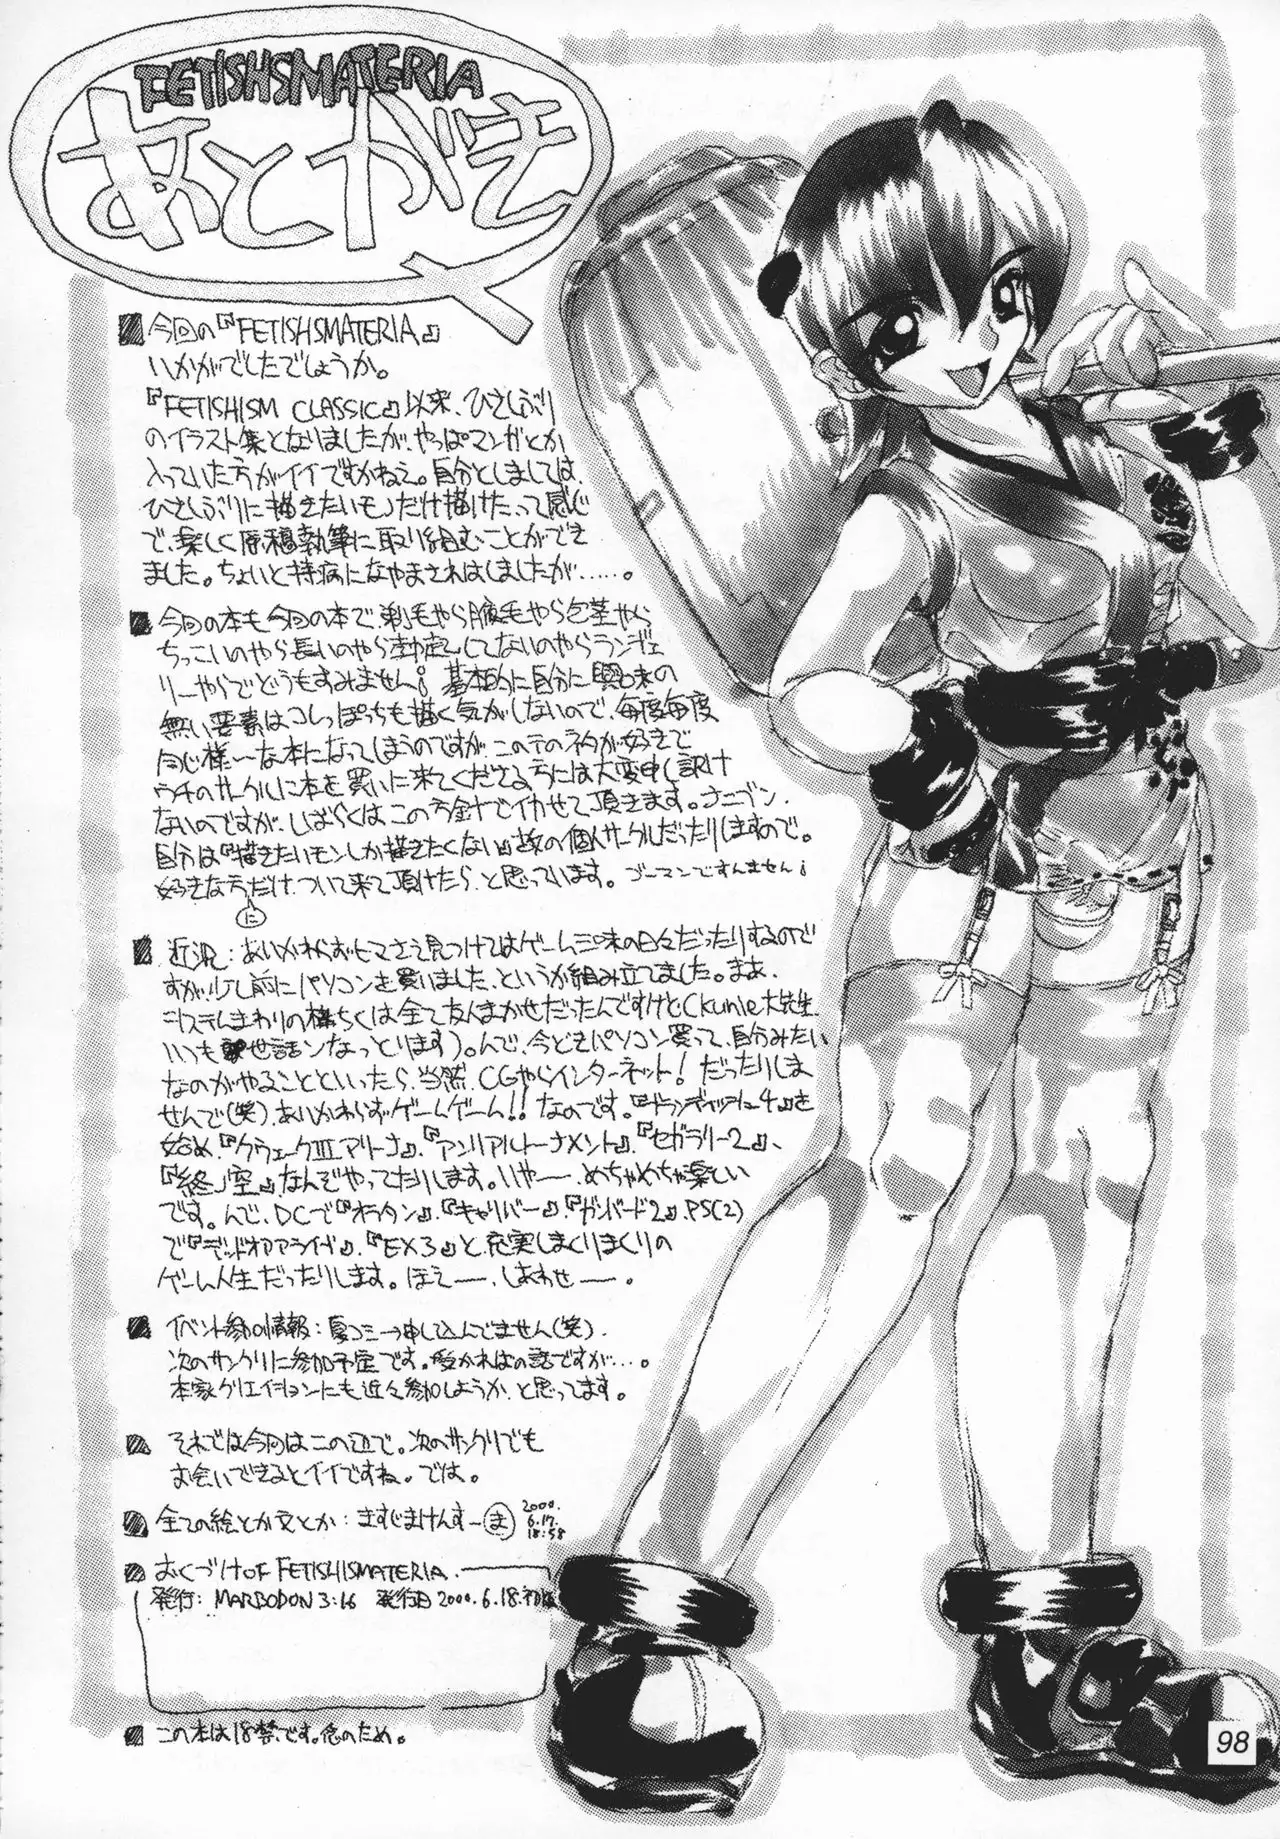 FETISHSMATERIA
あとがき
今回の『FETISHSMATERIA』
いかがでしたでしょうか。
『FETISHISM CLASSIC』以来、ひさしぶり
のイラスト集となりましたが、やっぱマンガとか
入っていた方がイイですかねえ。自分としましては、
ひさしぶりに描きたいモノだけ描けたって感じ
で、楽しく原稿執筆に取り組むことができ
ました。ちょいと持病になやまされはしましたが……。
今回の本も今回の本で、剃毛やら腋毛やら包茎やら
ちっこいのやら長いのやら勃起してないのやらランジェ
リーやらでどうもすみません! 基本的に自分に興味の
無い要素はコレっぽっちも描く気がしないので、毎度毎度
同じ様ーな本になってしまうのですが、このテのネタが好きで
ウチのサークルに本を買いに来てくださる方には大変申し訳け
ないのですが、しばらくはこの方針でイカせて頂きます。ナニブン、
自分は『描きたいモンしか描きたくない』故の個人サークルだったりしますので。
好きな方だけ、ついて来て頂けたら、と思っています。ゴーマンですんません!
に
近況：あいかわらずヒマさえ見つけてはゲーム三昧の日々だったりするので
すが、少し前にパソコンを買いました、というか組み立てました。まあ、
システムまわりの構ちくは全て友人まかせだったんですけど(Ckunie大先生、
いつも世話ンなっとります)。んで、今どきパソコン買って、自分みたい
なのがやることといったら、当然、CGやらインターネット! だったりしま
せんで(笑)、あいかわらずゲームゲーム!! なのです。『グランディッジュ4』を
始め、『クウェークⅢアリーナ』、『アンリアルトーナメント』、『セガラリー2』、
『終ノ空』なんぞやってたりします。いやー、めちゃめちゃ楽しい
です。んで、DCで『オラタン』、『キャリバー』、『ガンバード2』、PS(2)
で『デッドオアアライヴ』、『EX3』と、充実しまくりまくりの
ゲーム人生だったりします。ほえー、しあわせー。
イベント参加情報：夏コミ→申し込んでません(笑)。
次のサンクリに参加予定です。受かればの話ですが…。
本家クリエイションにも近々参加しようか、と思ってます。
それでは今回はこの辺で。次のサンクリでも
お会いできるとイイですね。では。
全ての絵とか文とか：きすじまけんすー ま 2000.
6.17.
18:58
おくづけOF FETISHISMATERIA.
発行：MARBODON 3:16 発行日 2000.6.18.初版
この本は18禁です。念のため。
98